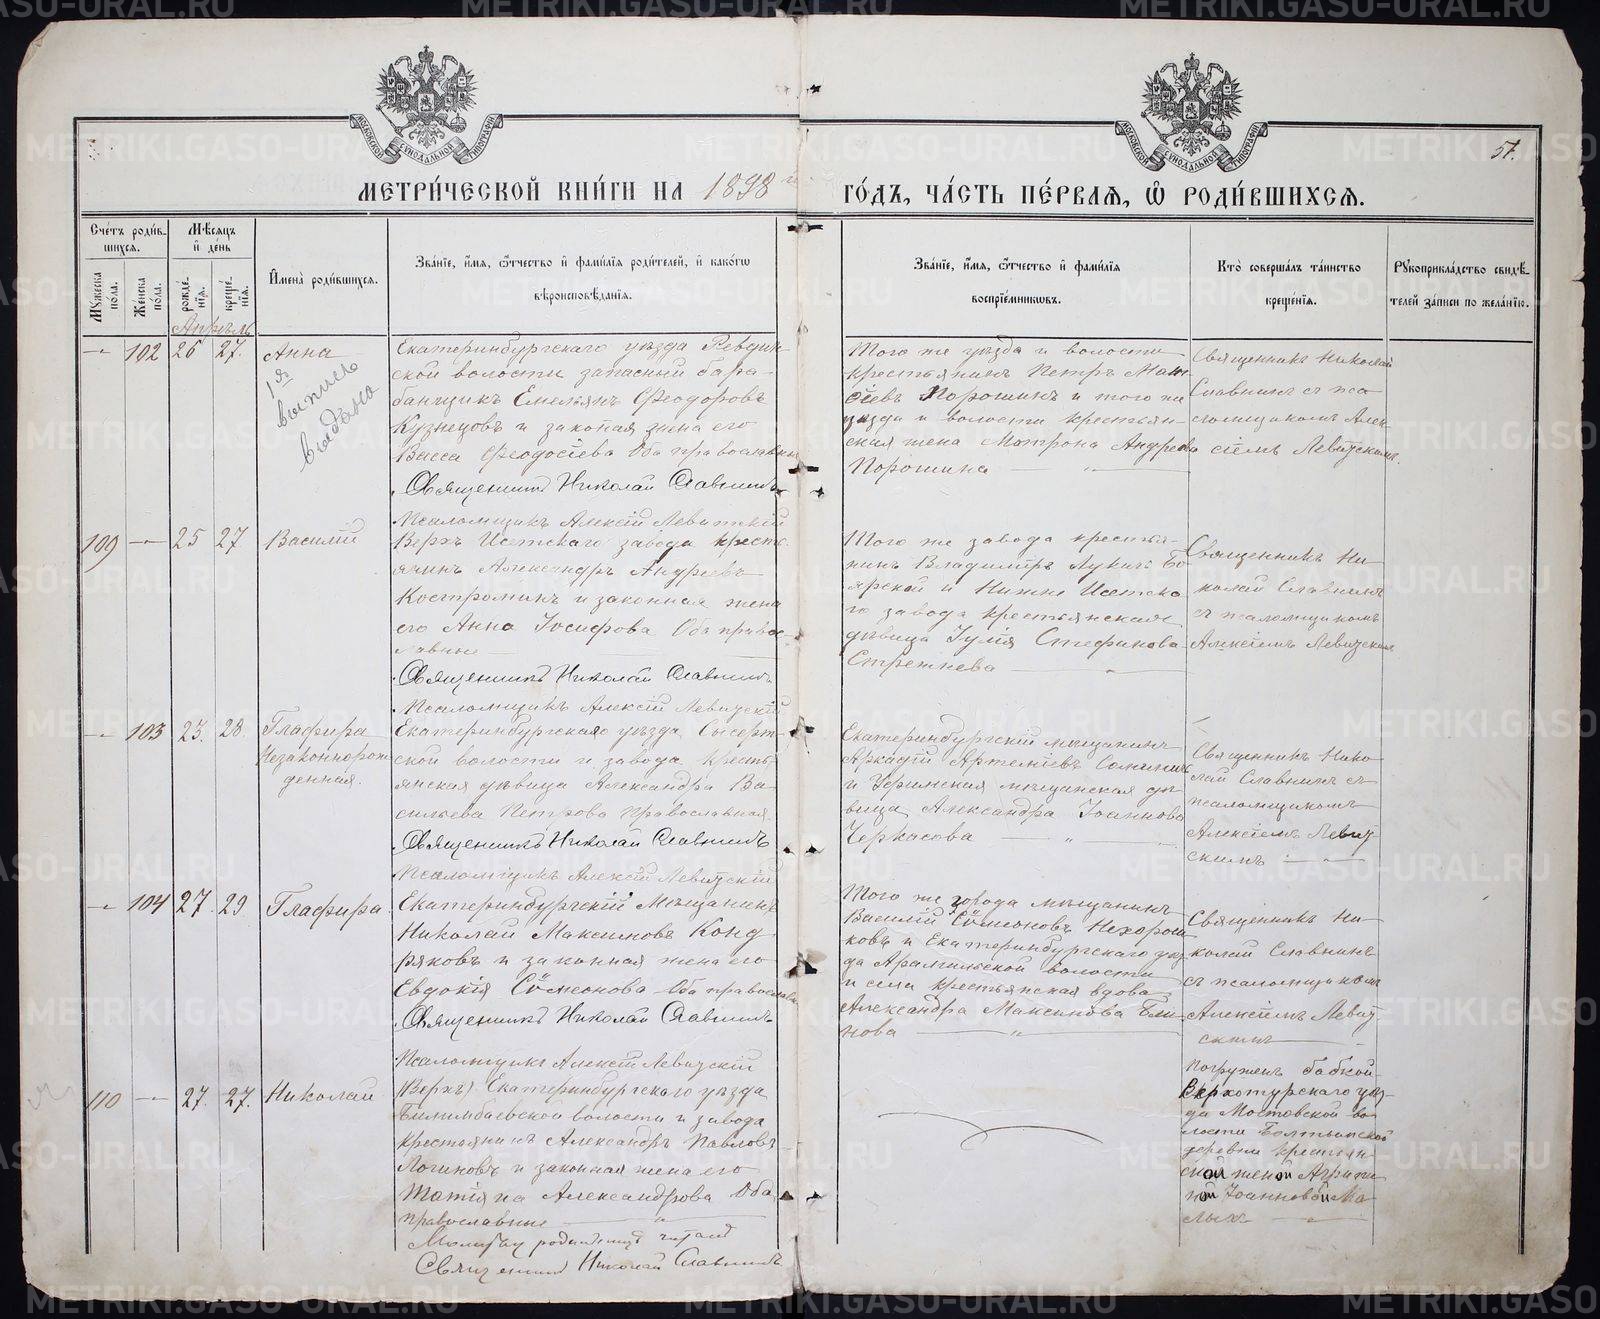 МЕТРИ́ЧЕСКОЙ КНИ́ГИ НА 1898 й ГО́ДЪ, ЧА́СТЬ ПЕ́РВАЯ, Ѽ РОДИ́ВШИХСЯ.
57.
МОСКОВСКОЙ СѴНОДАЛЬНОЙ ТИПОГРАФІИ
МОСКОВСКОЙ СѴНОДАЛЬНОЙ ТИПОГРАФІИ
Сче́тъ роди́вшихся.
Мꙋжеска по́ла.
Же́нска по́ла.
Мѣ́сяцъ и҆ де́нь
рожде́нїя.
креще́нїя.
И҆мена̀ роди́вшихся.
Зва́нїе, и҆́мя, ѻ҆́тчество и҆ фами́лїя роди́телей, и҆ како́гѡ
вѣроисповѣ́данїя.
Зва́нїе, и҆́мя, ѻ҆́тчество и҆ фами́лїя
воспрїе́мникѡвъ.
Кто̀ соверша́лъ та́инство
креще́нїя.
Рꙋкоприкла́дство свидѣ́-
телей за́писи по жела́нїю.
Апрѣль
— 102 26 27. Анна
1я
выпись
выдана
Екатеринбургскаго уѣзда Ревдин-
ской волости запасный бара-
банщикъ Емельянъ Феодоровъ
Кузнецовъ и законая жена его
Васса Феодосіева Оба православны
Священникъ Николай Славнинъ
Псаломщикъ Алексій Левитскій
Того же уѣзда и волости
крестьянинъ Петръ
Порошинъ и того же
уѣзда и волости крестьян-
ская жена Матрона Андреева
Порошина — „ —
Священникъ Николай
Славнинъ съ пса-
ломщикомъ Алек-
сіемъ Левитскимъ.
109 — 25 27 Василій
Верхъ Исетскаго завода кресть-
янинъ Александръ Андреевъ
Костроминъ и законная жена
его Анна Іосифова Оба правос-
лавные —
Священникъ Николай Славнинъ
Псаломщикъ Алексій Левитскій
Того же завода крестья-
нинъ Владиміръ Лукичъ Бо-
ярской и Нижне Исетска-
го завода крестьянская
дѣвица Іулія Стефанова
Стрежнева — „
Священникъ Ни-
колай Славнинъ
съ псаломщикомъ
Алексіемъ Левитскимъ
— 103 23. 28. Глафира
Незаконнорож-
денная.
Екатеринбургскаго уѣзда Сысерт-
ской волости и завода кресть-
янская дѣвица Александра Ва-
сильева Петрова Православная
Священникъ Николай Славнинъ
Псаломщикъ Алексій Левитскій
Екатеринбургскій мѣщанинъ
Аркадій Артеміевъ
и Уфимская мѣщанская дѣ-
вица Александра Іоаннова
Черкасова — „ —
Священникъ Нико-
лай Славнинъ съ
псаломщикомъ
Алексіемъ Левит-
скимъ —
— 104 27. 29 Глафира
Екатеринбургскій Мѣщанинъ
Николай Максимовъ Конд-
ряковъ и законная жена его
Евдокія Сѵмеонова Оба православны
Священникъ Николай Славнинъ
Псаломщикъ Алексій Левитскій
Того же города мѣщанинъ
Василій Сѵмеоновъ Нехорош-
ковъ и Екатеринбургскаго уѣз-
да Арамильской волости
и села крестьянская вдова
Александра Максимова Бли-
нова — „
Священникъ Ни-
колай Славнинъ
съ псаломщикомъ
Алексіемъ Левит-
скимъ —
110 — 27. 27. Николай
(Верхъ) Екатеринбургскаго уѣзда
Билимбаевской волости и завода
крестьянинъ Александръ Павловъ
Логиновъ и законная жена его
Татіяна Александрова Оба
православные — „ —
Молитву родильницѣ читалъ
Священникъ Николай Славнинъ
Погруженъ бабкой
Верхотурскаго уѣз-
да Мостовской во-
лости
деревни крестьян-
ской женой Агрипи-
ной Іоанновой Ма-
лыхъ —
METRIKI.GASO-URAL.RU